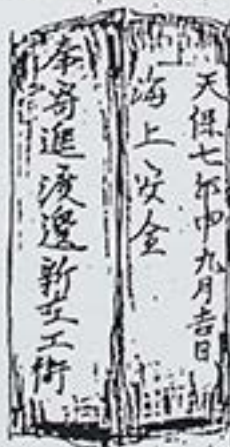 天保七年申九月吉日
海上安全
奉寄進渡邊新立工衛